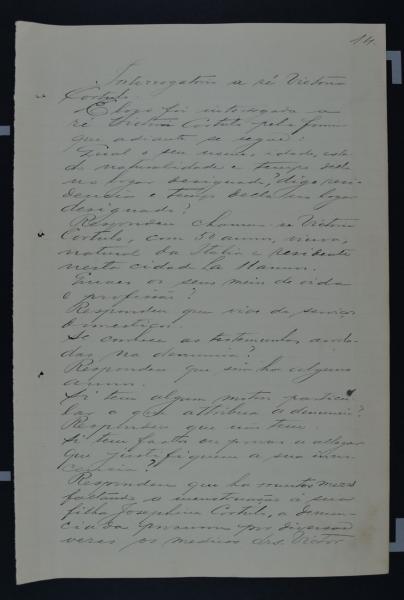 14.
Interrogatorio a ré Victoria
Cortulo
E logo foi interrogada a
ré Victoria Cortulo pela forma
que adiante se segue:
Qual o seu nome, idade, esta-
do, naturalidade e tempo deste
no logar designado? digo resi-
dencia e tempo desta no logar
designado?
Respondeu chamar-se Victoria
Cortulo, com 50 annos, viuva,
natural da Italia e residente
nesta cidade ha annos.
Quaes os seus meios de vida
e profissão?
Respondeu que vive de serviços
domesticos.
Se conhece as testemunhas arrola-
das na denuncia?
Respondeu que sim ha alguns
annos.
Si tem algum motivo particu-
lar a que attribua a denuncia?
Respondeu que não tem.
Si tem factos ou provas a allegar
que justifiquem a sua inno-
cencia?
Respondeu que ha muitos mezes
faltando a menstruação á sua
filha Josephina Cortulo, a denun-
ciada procurou por diversas
vezes os medicos drs. Victor